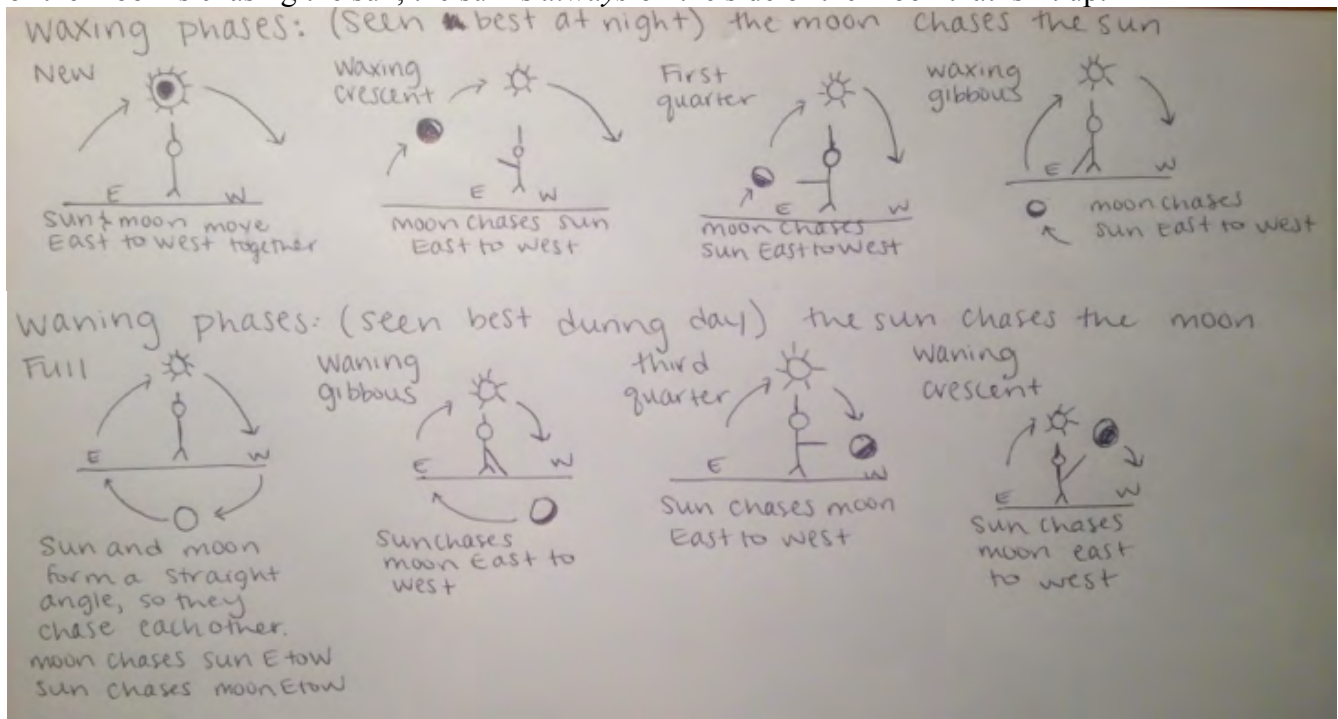 of the moon is chasing the sun, the sun is always on the side of the moon that is lit up.
Waxing phases: (seen best at night) the moon chases the sun
New
E W
Sun & moon move
East to west together
Waxing
crescent
E W
moon chases sun
East to west
First
quarter
E W
moon chases
sun East to West
waxing
gibbous
E W
moon chases
sun East to west
Waning phases: (seen best during day) the sun chases the moon
Full
E W
Sun and moon
form a straight
angle, so they
chase each other.
moon chases sun E to W
sun chases moon E to W
Waning
gibbous
E W
Sun chases
moon East to
west
third
quarter
E W
Sun chases moon
East to west
Waning
crescent
E W
Sun chases
moon east
to west